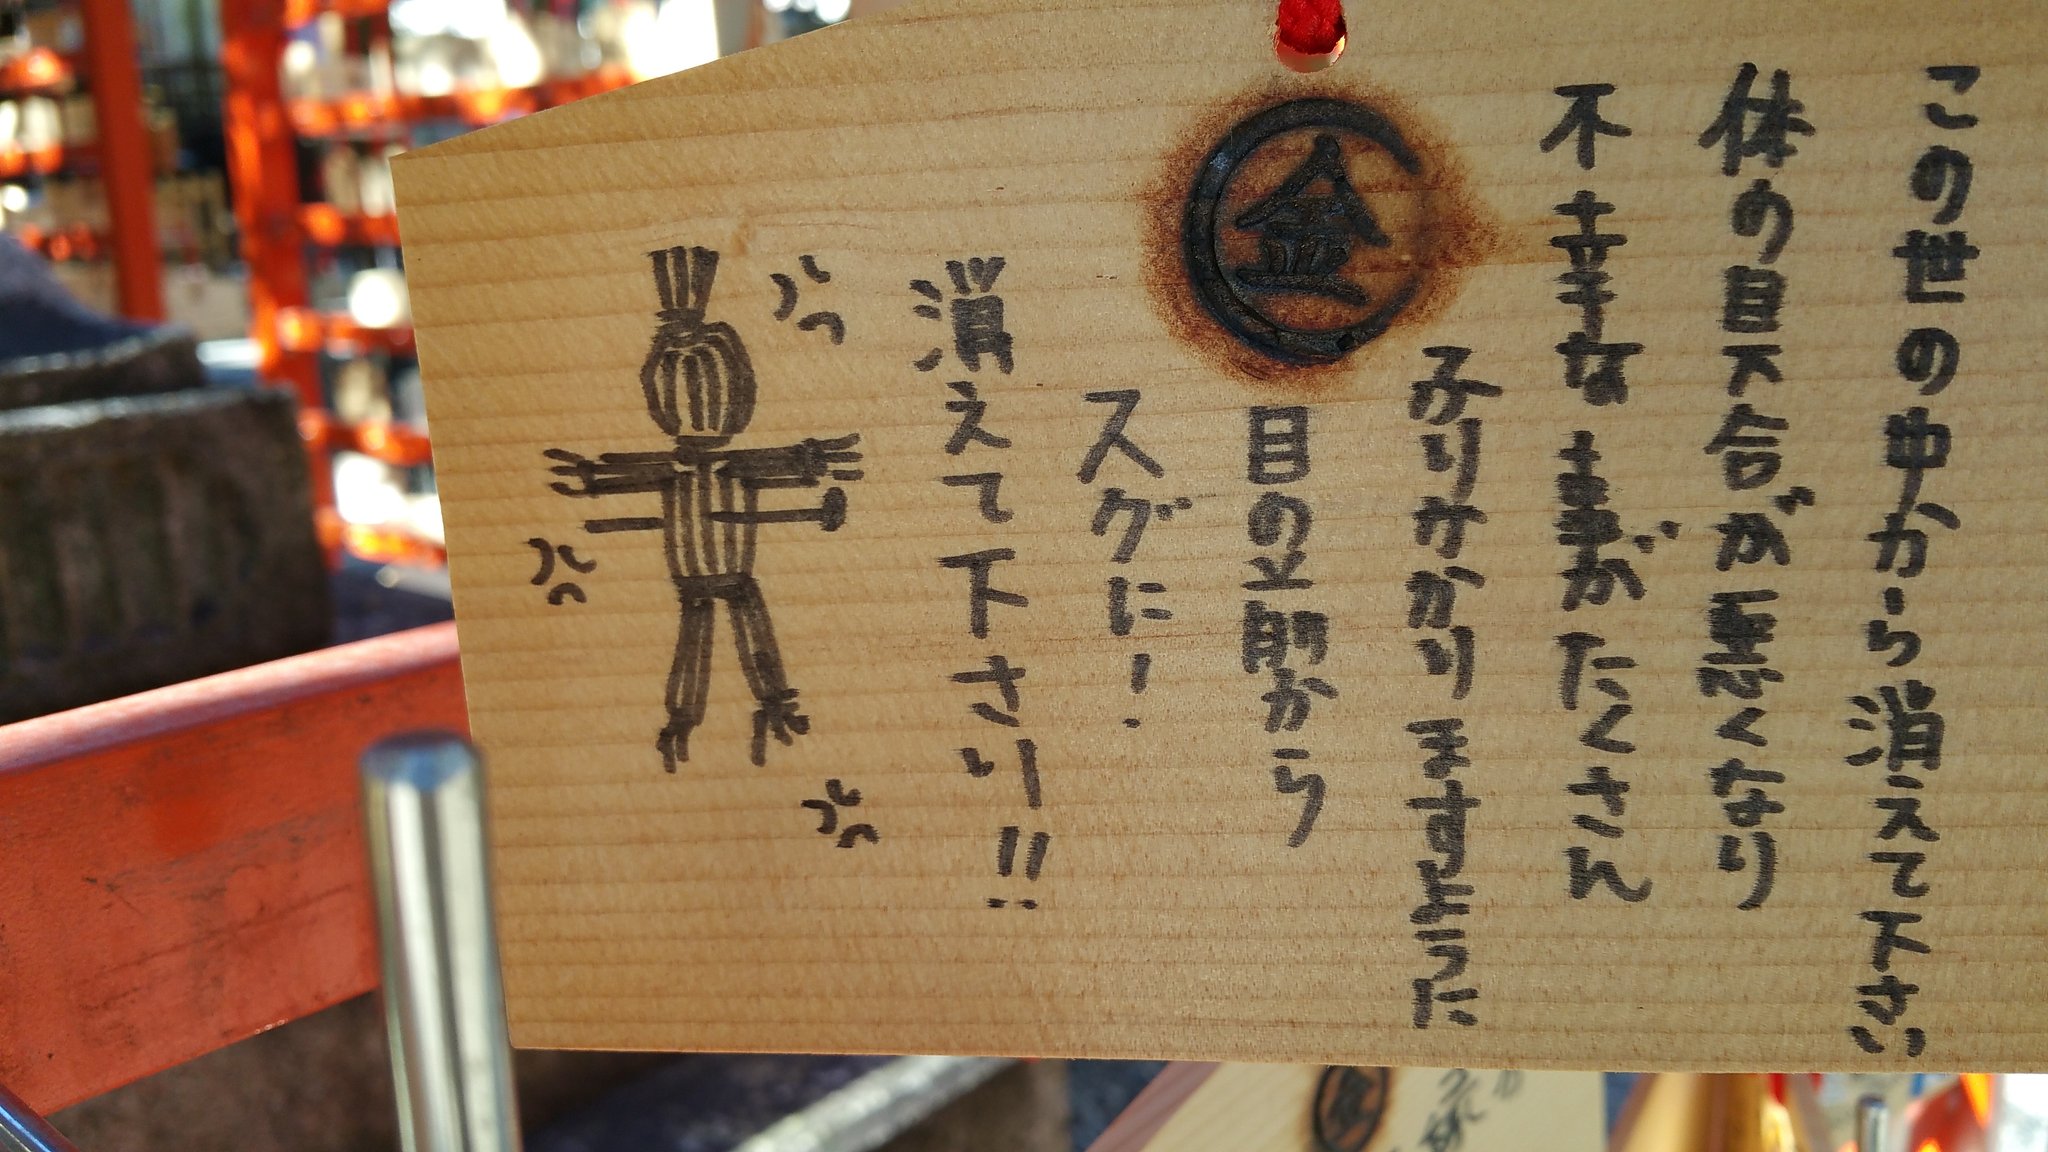 この世の中から消えて下さい
体の具合が悪くなり
不幸な事がたくさん
ふりかかりますように
金
目の前から
スグに！
消えて下さい!!
金